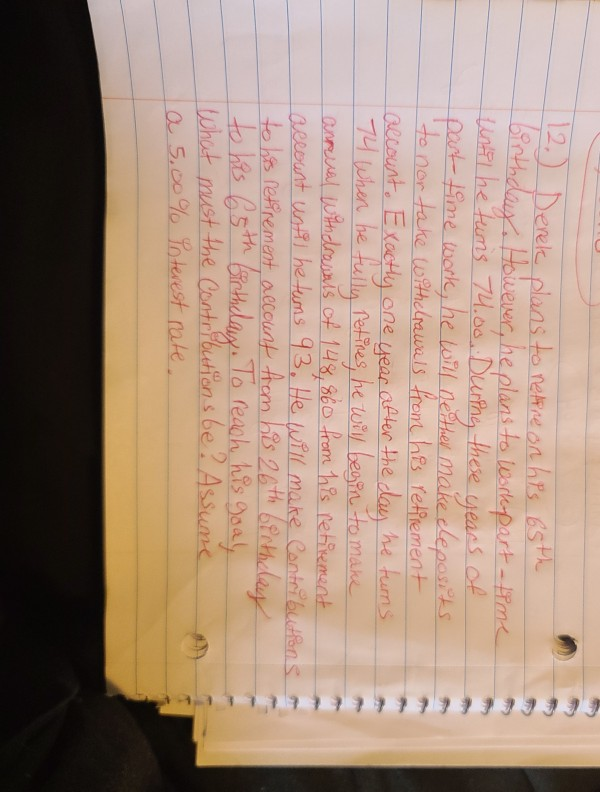 12.) Derek plans to retire on his 65th
birthday. However, he plans to work part-time
until he turns 74.00. During these years of
part-time work, he will neither make deposits
to nor take withdrawals from his retirement
account. Exactly one year after the day he turns
74 when he fully retires, he will begin to make
annual withdrawals of 148,860 from his retirement
account until he turns 93. He will make contributions
to his retirement account from his 26th birthday
to his 65th birthday. To reach his goal,
what must the contributions be? Assume
a 5.00% interest rate.